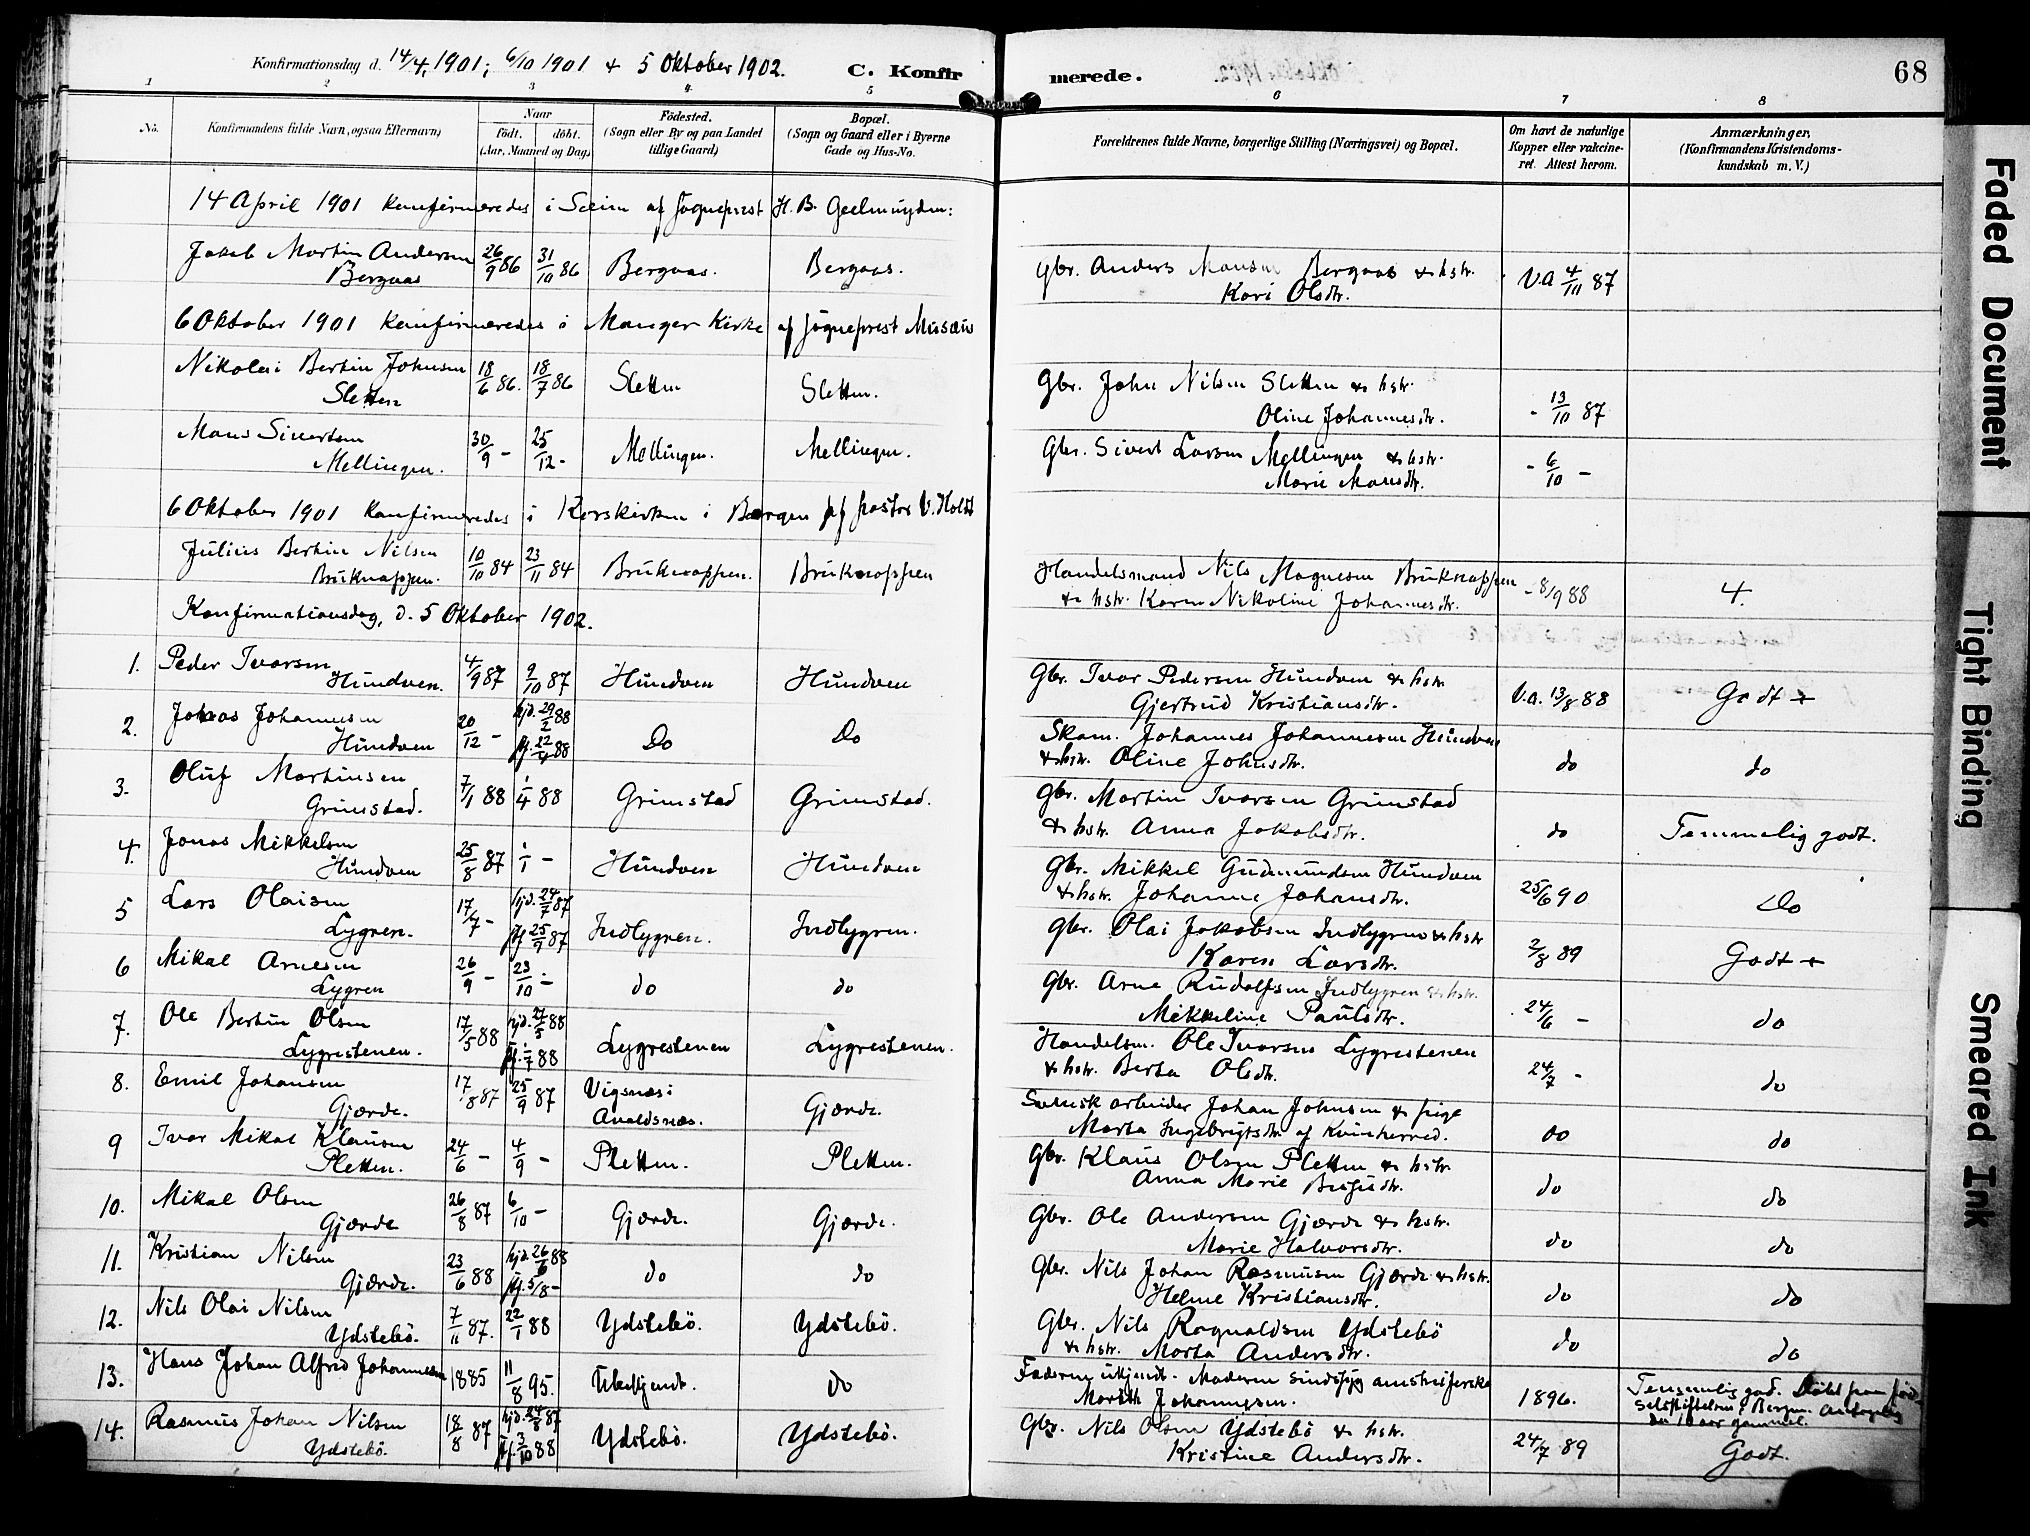 Konfirmationsdag d. 14/4 1901; 6/10 1901 & 5 Oktober 1902. C. Konfirmerede. 68
1 2 3 4 5 6 7 8
No. Konfirmandens fulde Navn, ogsaa Efternavn) Naar født. døbt. (Aar, Maaned og Dag) Fødested. (Sogn eller By og paa Landet tillige Gaard) Bopæl. (Sogn og Gaard eller i Byerne Gade og Hus-No. Forældrenes fulde Navne, borgerlige Stilling (Næringsvei) og Bopæl. Om havt de naturlige Kopper eller vakcineret. Attest herom. Anmærkninger, (Konfirmandens Kristendomskundskab m. V.)
14 April 1901 Konfirmeredes i Seim af sogneprest H. B. Geelmuyden:
Jakob Martin Andersen Bergaas 26/9 86 31/10 86 Bergaas. Bergaas. Gbr. Anders Monsen Bergaas & hstr. Kari Olsdtr. V.a 4/11 87
6 Oktober 1901 Konfirmeredes i Manger Kirke af sogneprest Musæus
Nikolai Bertin Johnsen Sletten 18/6 86. 18/7 86 Sletten Sletten. Gbr. John Nilsen Sletten & hstr. Oline Johannesdtr. - 13/10 87
Mons Sivertsen Mellingen. 30/9 - 25/12 - Mellingen. Mellingen. Gbr. Sivert Larsen Mellingen & hstr. Marie Monsdtr. - 6/10 -
6 Oktober 1901 Konfirmeredes i Korskirken i Bergen af pastor V. Holdt
Julius Bertin Nilsen Bruknappen. 10/10 84 23/11 84 Bruknappen. Bruknappen Handelsmand Nils Magnesen Bruknappen & hstr. Karen Nikoline Johannesdtr. - 8/9 88 4.
Konfirmationsdag, d. 5 Oktober 1902.
1. Peder Ivarsen Hundven. 4/9 87 9/10 87 Hundven Hundven Gbr. Ivar Pedersen Hundven & hstr. Gjertrud Kristiansdtr. V.a. 13/8 88 Godt +
2. Johas Johannesen Hundven 20/12 - hjd. 29/2 88 pf. 22/4 88 Do Do Skom. Johannes Johannesen Hundven & hstr. Oline Johnsdtr. do do
3. Oluf Martinsen Grimstad. 7/1 88 1/4 88 Grimstad Grimstad. Gbr. Martin Ivarsen Grimstad & hstr. Anna Jakobsdtr. do Temmelig godt.
4. Jonas Mikkelsen Hundven 25/8 87 1/1 - Hundven Hundven Gbr. Mikkel Gudmundsen Hundven & hstr. Johanne Johansdtr. 25/6 90 Do
5 Lars Olaisen Lygren. 17/7 - hjd. 24/7 87 pf 25/9 87 Indlygren. Indlygren. Gbr. Olai Jakobsen Indlygren & hstr Karen Larsdtr. 2/8 89 Godt +
6 Mikal Arnesen Lygren 26/9 - 23/10 - do do Gbr. Arne Rudolfsen Indlygren & hstr. Mikkeline Paulsdtr. 24/6 - do
7. Ole Bertin Olsen Lygrestenen. 17/5 88 hjd. 27/5 88 pf. 1/7 88 Lygrestenen Lygrestenen. Handelsm. Ole Ivarsen Lygrestenen & hstr. Berta Olsdtr. 24/7 - do
8. Emil Johansen Gjærde. 17/8 87 25/9 87 Vigsnæs i Avaldsnæs. Gjærde. Svensk arbeider Johan Johnsen & pige Marta Ingebrigtsdtr. af Kvinherred. do do
9 Ivar Mikal Klausen Pletten. 24/6 - 4/9 - Pletten. Pletten. Gbr. Klaus Olsen Pletten & hstr. Anna Marie do do
10. Mikal Olsen Gjærde 26/8 87 6/10 - Gjærde. Gjærde. Gbr. Ole Andersen Gjærde & hstr. Marie Halvorsdtr. do do
11. Kristian Nilsen Gjærde. 23/6 88 hjd. 26/6 88 pf. 5/8 - do do Gbr. Nils Johan Rasmusen Gjærde & hstr. Helene Kristiansdtr. do do
12. Nils Olai Nilsen Ydstebö. 7/11 87. 22/1 88 Ydstebö. Ydstebö. Gbr. Nils Ragnaldsen Ydstebö & hstr. Marta Andersdtr. do do
13. Hans Johan Alfred Johannesen 1885 11/8 95. Ubekjendt. do Faderen ukjendt. Moderen sindssyg Marith Johannesen. 1896. Temmelig god. Döbt paa i Bergen.
14. Rasmus Johan Nilsen Ydstebö. 18/8 87 hjd. 24/8 87 pf. 3/10 88 Ydstebö. Ydstebö. Gbr. Nils Olsen Ydstebö & hstr. Kristine Andersdtr. 24/7 89 Godt.
Faded Document
Tight Binding
Smeared Ink